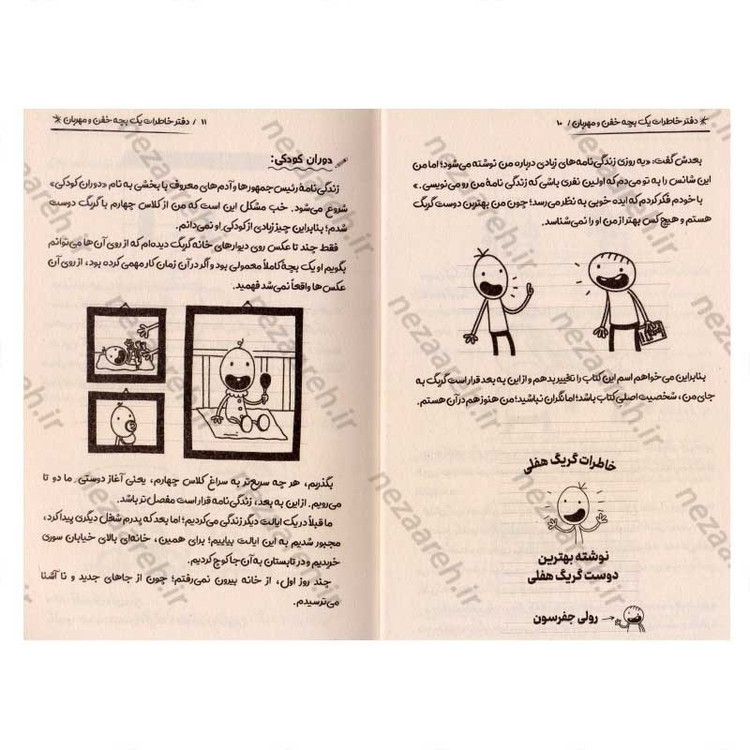 * دفتر خاطرات یک بچه خفن و مهربان / ۱۰
بعدش گفت: «یه روزی زندگی‌نامه‌های زیادی درباره من نوشته می‌شود؛ اما من
این شانس را به تو می‌دم که اولین نفری باشی که زندگی نامۀ من رو می‌نویسی.»
با خودم فکر کردم که ایده خوبی به نظر می‌رسد؛ چون من بهترین دوست گریگ
هستم و هیچ کس بهتر از من او را نمی‌شناسد.
بنابراین می‌خواهم اسم این کتاب را تغییر بدهم و از این به بعد قرار است گریگ به
جای من، شخصیت اصلی کتاب باشد؛ اما نگران نباشید؛ من هنوز هم در آن هستم.
خاطرات گریگ هفلی
نوشته بهترین
دوست گریگ هفلی
رولی جفرسون
۱۱ / دفتر خاطرات یک بچه خفن و مهربان *
دوران کودکی:
زندگی‌نامۀ رئیس جمهورها و آدم‌های معروف با بخشی به نام «دوران کودکی»
شروع می‌شود. خب مشکل این است که من از کلاس چهارم با گریگ دوست
شدم؛ بنابراین چیز زیادی از کودکی او نمی‌دانم.
فقط چند تا عکس روی دیوارهای خانه گریگ دیده‌ام که از روی آن ها می‌توانم
بگویم او یک بچۀ کاملاً معمولی بود و اگر در آن زمان کار مهمی کرده بود، از روی آن
عکس ها واقعاً نمی‌شد فهمید.
بگذریم، هر چه سریع‌تر به سراغ کلاس چهارم، یعنی آغاز دوستی ما دو تا
می‌رویم. از این به بعد، زندگی نامه قرار است مفصل تر باشد.
ما قبلاً در یک ایالت دیگر زندگی می‌کردیم؛ اما بعد که پدرم شغل دیگری پیدا کرد،
مجبور شدیم به این ایالت بیاییم؛ برای همین، خانه‌ای بالای خیابان سوری
خریدیم و در تابستان به آن جا کوچ کردیم.
چند روز اول، از خانه بیرون نمی‌رفتم؛ چون از جاهای جدید و نا آشنا
می‌ترسیدم.
nezaareh.ir
nezaareh.ir
nezaareh.ir
nezaareh.ir
nezaareh.ir
nezaareh.ir